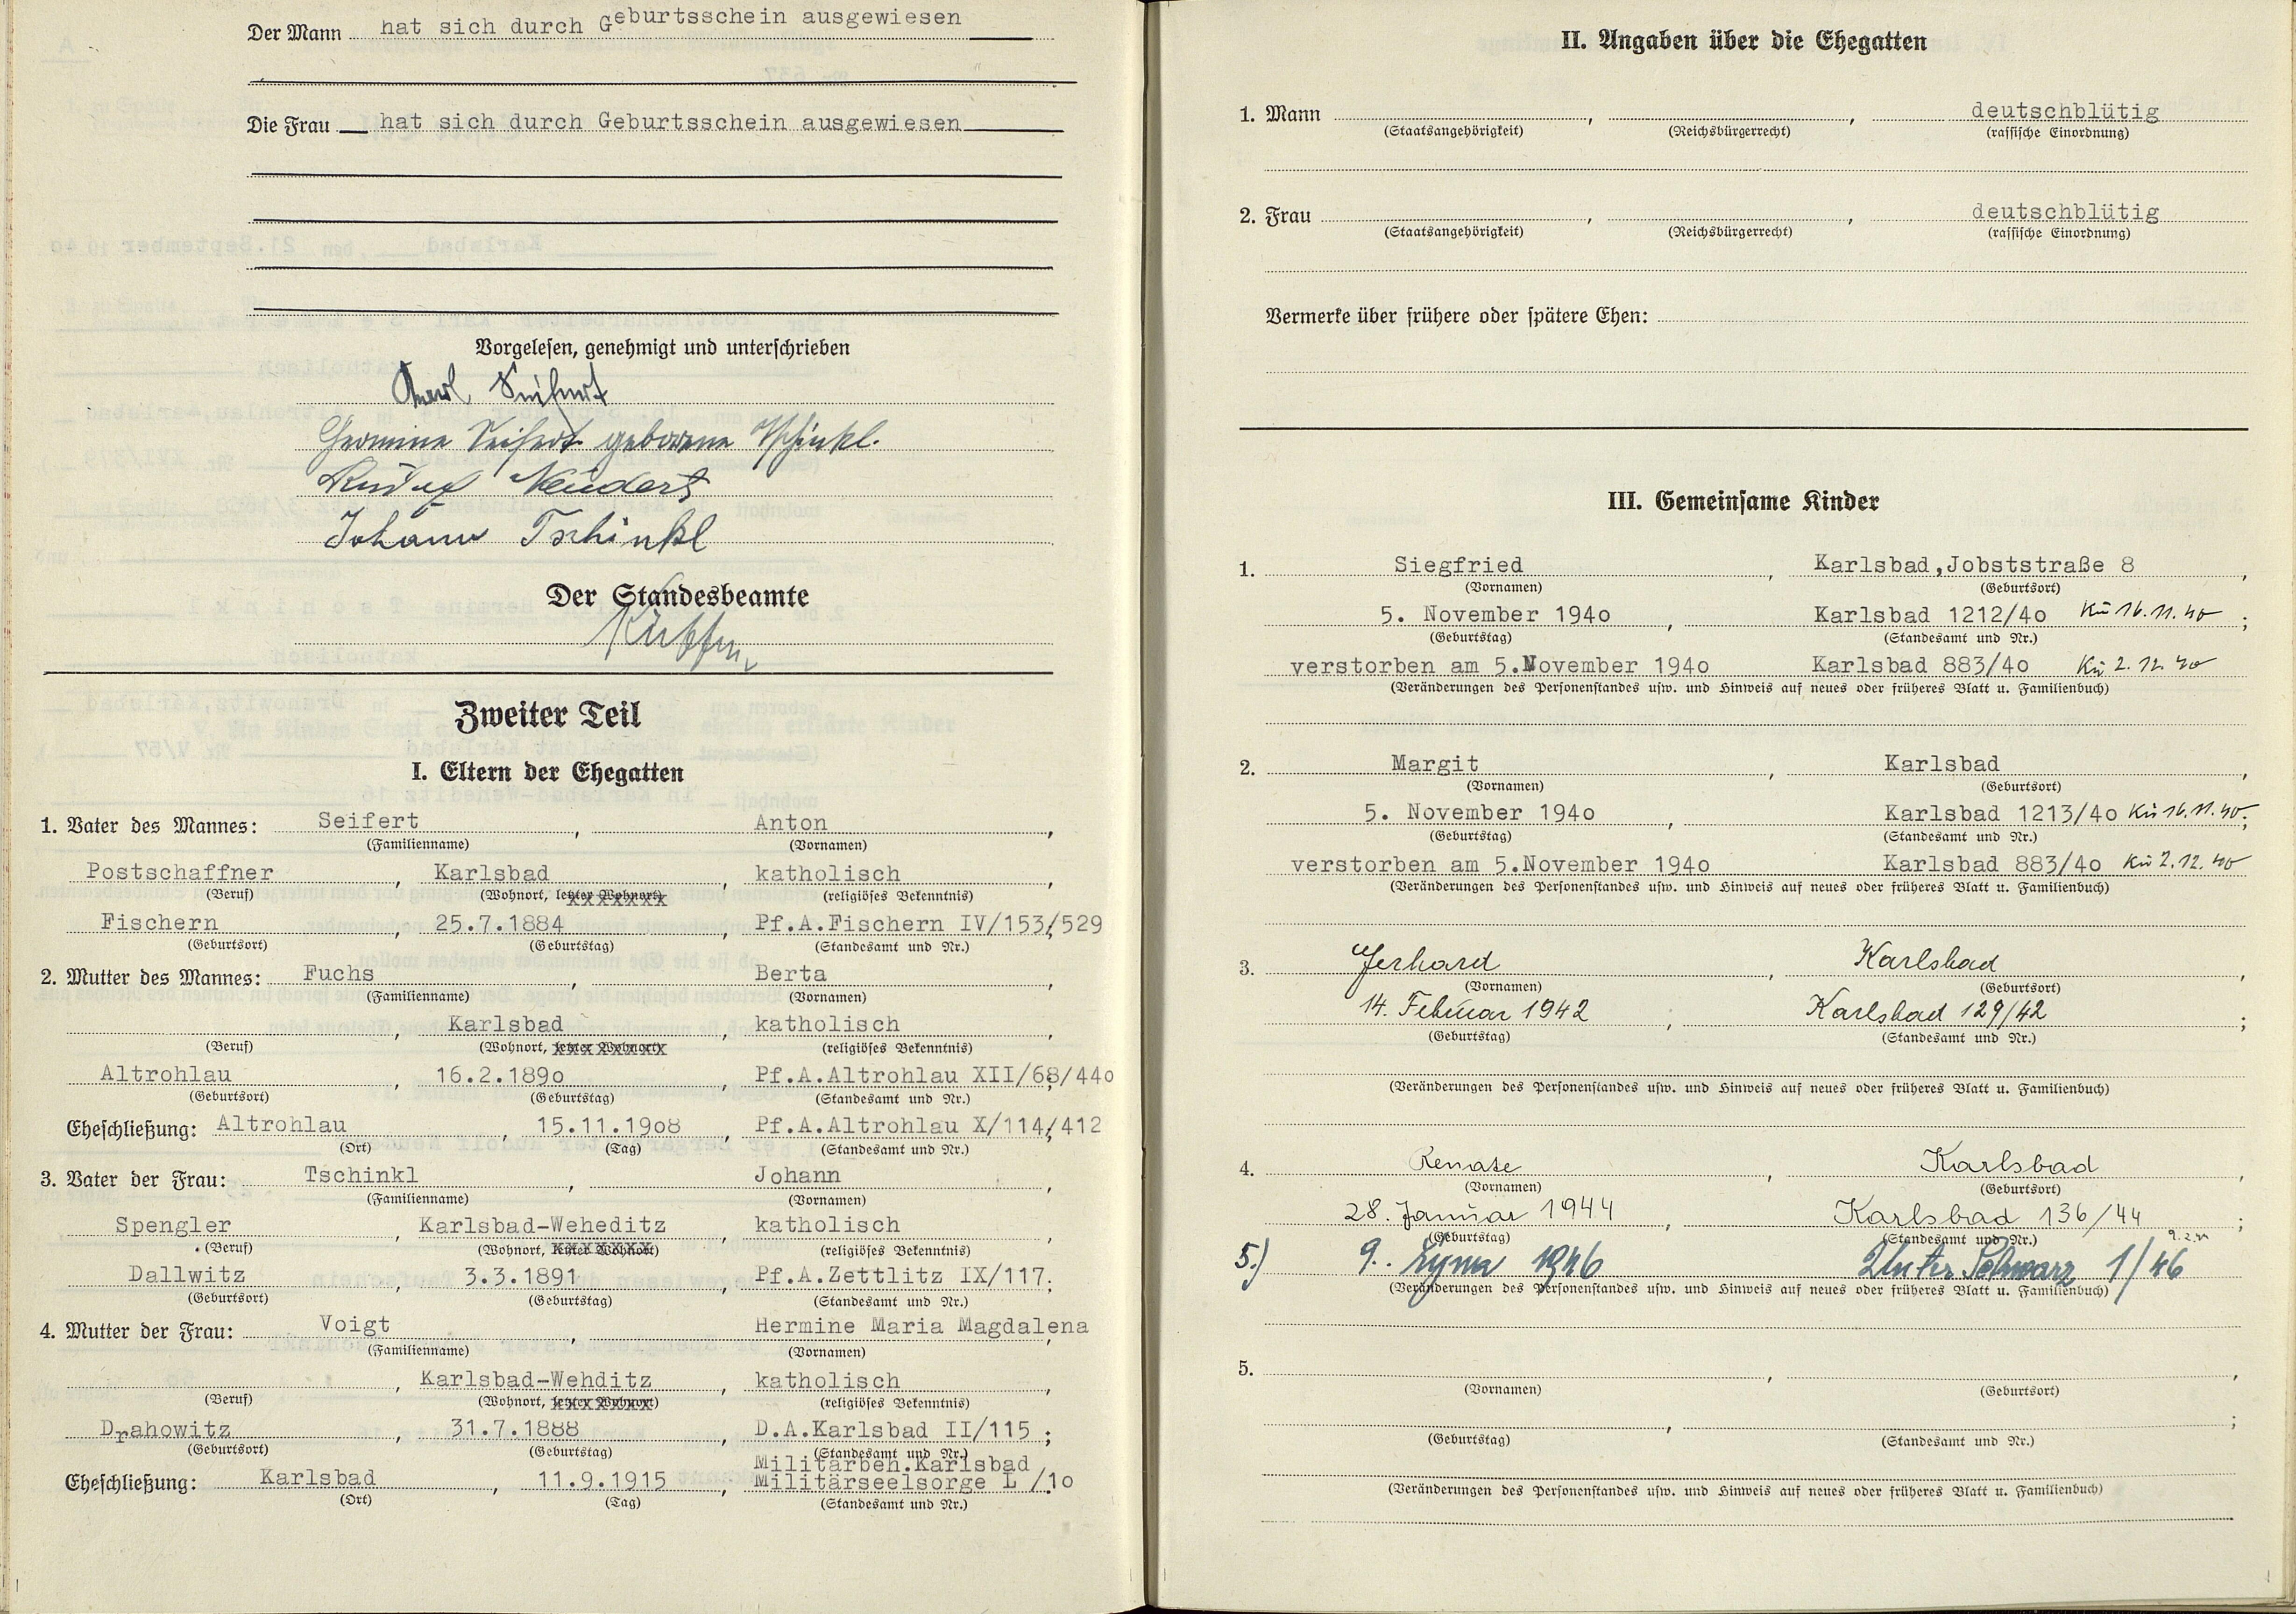 Der Mann hat sich durch Geburtsschein ausgewiesen
Die Frau hat sich durch Geburtsschein ausgewiesen
Vorgelesen, genehmigt und unterschrieben
Karl Seifert
Hermine Seifert geborene Tschinkl.
Rudolf Neudert
Johann Tschinkl
Der Standesbeamte
Zweiter Teil
I. Eltern der Ehegatten
1. Vater des Mannes: Seifert, Anton,
(Familienname) (Vornamen)
Postschaffner, Karlsbad, katholisch,
(Beruf) (Wohnort, letzter Wohnort) (religiöses Bekenntnis)
Fischern, 25.7.1884, Pf.A.Fischern IV/153/529;
(Geburtsort) (Geburtstag) (Standesamt und Nr.)
2. Mutter des Mannes: Fuchs, Berta,
(Familienname) (Vornamen)
, Karlsbad, katholisch,
(Beruf) (Wohnort, letzter Wohnort) (religiöses Bekenntnis)
Altrohlau, 16.2.1890, Pf.A.Altrohlau XII/68/440;
(Geburtsort) (Geburtstag) (Standesamt und Nr.)
Eheschließung: Altrohlau, 15.11.1908, Pf.A.Altrohlau X/114/412;
(Ort) (Tag) (Standesamt und Nr.)
3. Vater der Frau: Tschinkl, Johann,
(Familienname) (Vornamen)
Spengler, Karlsbad-Weheditz, katholisch,
(Beruf) (Wohnort, letzter Wohnort) (religiöses Bekenntnis)
Dallwitz, 3.3.1891, Pf.A.Zettlitz IX/117;
(Geburtsort) (Geburtstag) (Standesamt und Nr.)
4. Mutter der Frau: Voigt, Hermine Maria Magdalena,
(Familienname) (Vornamen)
, Karlsbad-Wehditz, katholisch,
(Beruf) (Wohnort, letzter Wohnort) (religiöses Bekenntnis)
Drahowitz, 31.7.1888, D.A.Karlsbad II/115;
(Geburtsort) (Geburtstag) (Standesamt und Nr.)
Militärbeh.Karlsbad
Eheschließung: Karlsbad, 11.9.1915, Militärseelsorge L /10.
(Ort) (Tag) (Standesamt und Nr.)
II. Angaben über die Ehegatten
1. Mann , , deutschblütig
(Staatsangehörigkeit) (Reichsbürgerrecht) (rassische Einordnung)
2. Frau , , deutschblütig
(Staatsangehörigkeit) (Reichsbürgerrecht) (rassische Einordnung)
Vermerke über frühere oder spätere Ehen:
III. Gemeinsame Kinder
1. Siegfried, Karlsbad,Jobststraße 8,
(Vornamen) (Geburtsort)
5. November 1940, Karlsbad 1212/40 Kü 16.11.40;
(Geburtstag) (Standesamt und Nr.)
verstorben am 5.November 1940 Karlsbad 883/40 Kü 2.12.40
(Veränderungen des Personenstandes usw. und Hinweis auf neues oder früheres Blatt u. Familienbuch)
2. Margit, Karlsbad,
(Vornamen) (Geburtsort)
5. November 1940, Karlsbad 1213/40 Kü 16.11.40;
(Geburtstag) (Standesamt und Nr.)
verstorben am 5.November 1940 Karlsbad 883/40 Kü 2.12.40
(Veränderungen des Personenstandes usw. und Hinweis auf neues oder früheres Blatt u. Familienbuch)
3. Gerhard, Karlsbad,
(Vornamen) (Geburtsort)
14. Februar 1942, Karlsbad 129/42;
(Geburtstag) (Standesamt und Nr.)
(Veränderungen des Personenstandes usw. und Hinweis auf neues oder früheres Blatt u. Familienbuch)
4. Renate, Karlsbad,
(Vornamen) (Geburtsort)
28. Januar 1944, Karlsbad 136/44;
(Geburtstag) (Standesamt und Nr.)
5.) 9. 1946 1/46
(Veränderungen des Personenstandes usw. und Hinweis auf neues oder früheres Blatt u. Familienbuch)
5. , ,
(Vornamen) (Geburtsort)
, ;
(Geburtstag) (Standesamt und Nr.)
(Veränderungen des Personenstandes usw. und Hinweis auf neues oder früheres Blatt u. Familienbuch)